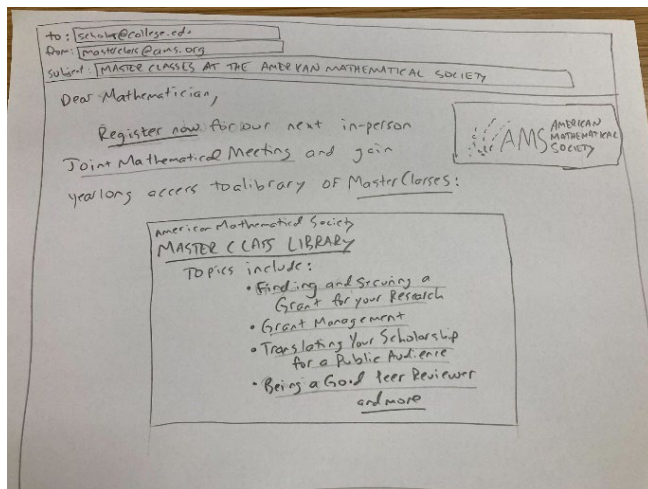 to: scholar@college.edu
from: masterclass@ams.org
subject: MASTER CLASSES AT THE AMERICAN MATHEMATICAL SOCIETY
Dear Mathematician,
Register now for our next in-person
Joint Mathematical Meeting and gain
yearlong access to a library of Master Classes:
AMS AMERICAN
MATHEMATICAL
SOCIETY
American Mathematical Society
MASTER CLASS LIBRARY
Topics include:
• Finding and Securing a
Grant for your Research
• Grant Management
• Translating Your Scholarship
for a Public Audience
• Being a Good Peer Reviewer
and more